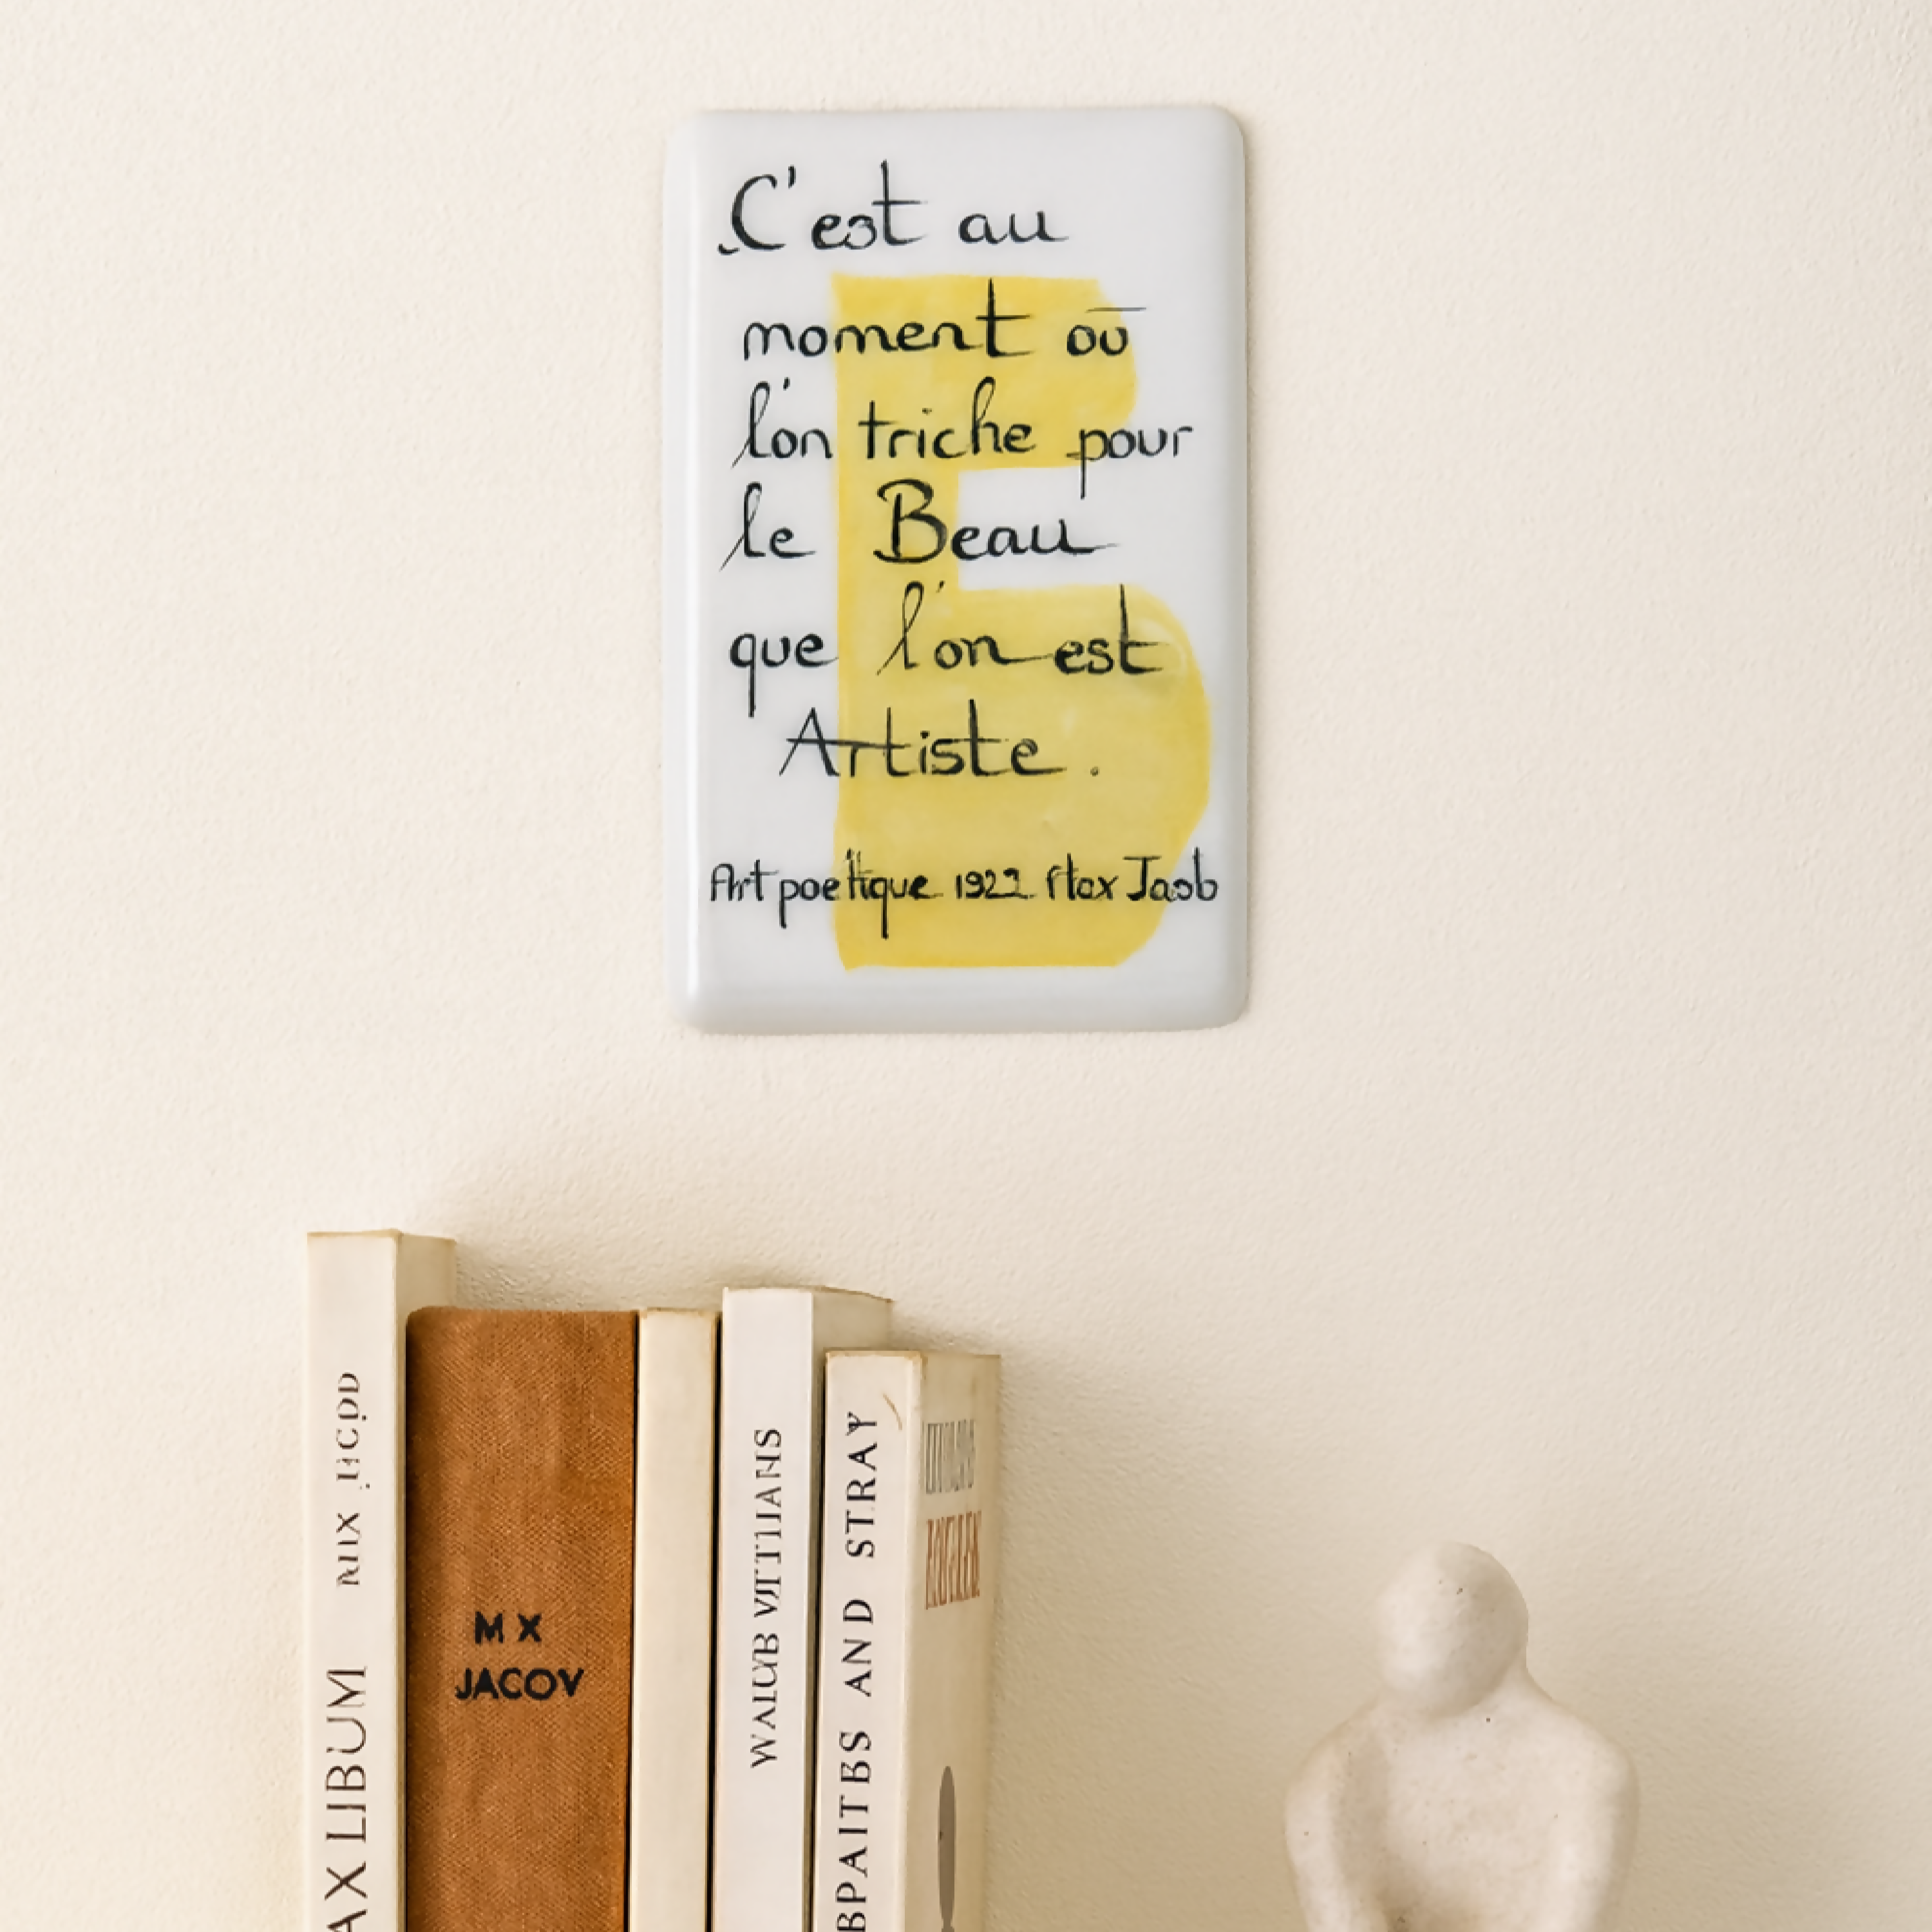 C'est au
moment où
l'on triche pour
le Beau
que l'on est
Artiste.
Art poetique 1922 Max Jacob
M X
JACOV
AX LIBUM
WALUB VITIANS
BPAITBS AND STRAY